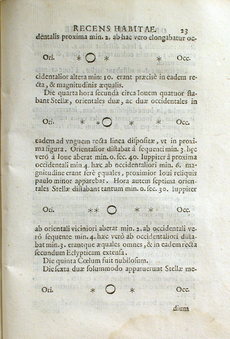 RECENS HABITAE. 23
dentalis proxima min. 2. ab hac vero elongabatur oc-
Ori. * O * * Occ.
cidentalior altera min: 10. erant præcise in eadem re-
cta, & magnitudinis æqualis.
Die quarta hora secunda circa Iouem quatuor sta-
bant Stellæ, orientales duæ, ac duæ occidentales in
Ori. * * O * * Occ.
eadem ad vnguem recta linea dispositæ, vt in proxi-
ma figura. Orientalior distabat à sequenti min. 3. hęc
verò à Ioue aberat min. 0. sec. 40. Iuppiter à proxima
occidentali min. 4. hæc ab occidentaliori min. 6. ma-
gnitudine erant ferè ęquales, proximior Ioui reliquis
paulo minor apparebat. Hora autem septima orien-
tales Stellæ distabant tantum min. 0. sec. 30. Iuppiter
Ori. ** O * * Occ.
ab orientali viciniori aberat min. 2. ab occidentali ve-
rò sequente min. 4. hæc verò ab occidentaliori dista-
bat min. 3. erantque æquales omnes, & in eadem recta
secundum Eclypticam extensa.
Die quinta Cœlum fuit nubilosum.
Die sexta duæ solummodo apparuerunt Stellæ me-
Ori. * O * Occ.
dium